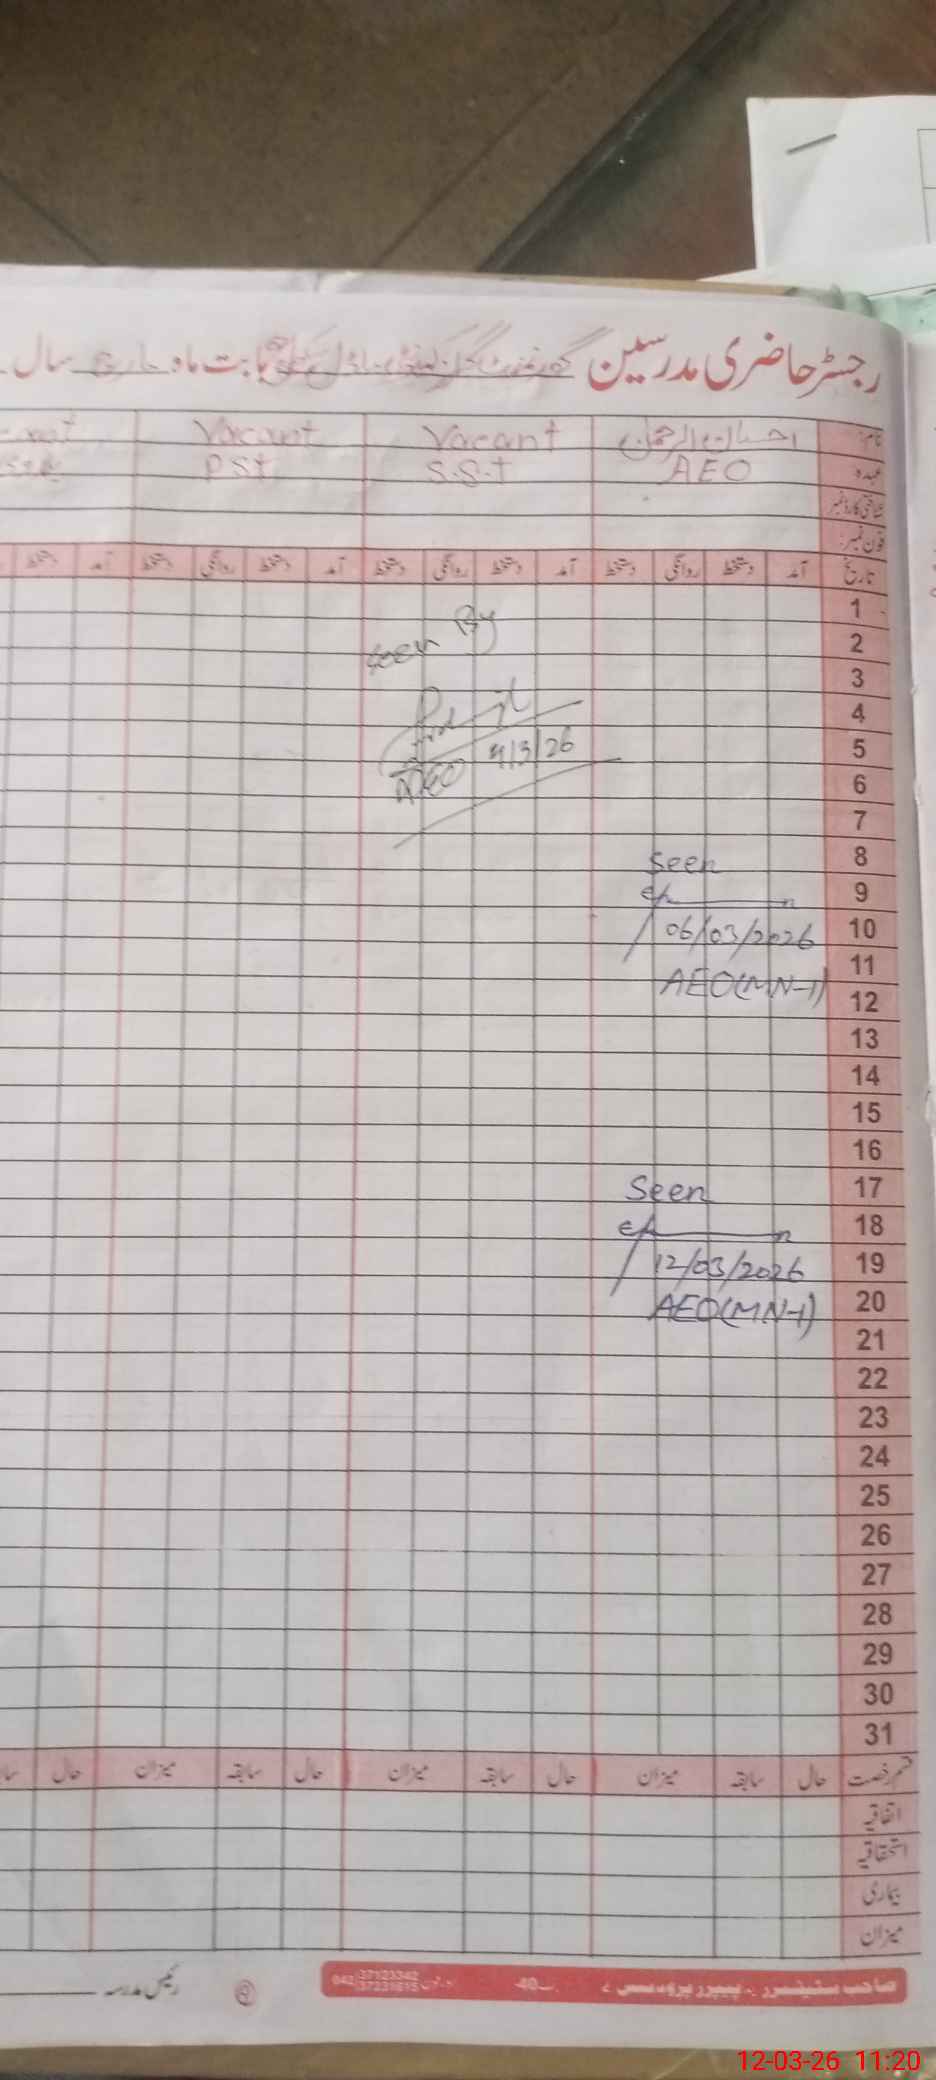 رجسٹر حاضری مدرسین گورنمنٹ گرلز بابت ماہ مارچ سال
نام: احسان الرحمٰن Vacant Vacant
عہدہ AEO S.S.T PST
شناختی کارڈ نمبر
فون نمبر:
تاریخ آمد دستخط روانگی دستخط آمد دستخط روانگی دستخط آمد دستخط روانگی دستخط آمد دستخط
1
2
Seen By
3
4
5
AEO 4/3/26
6
7
8
Seen
9
10
06/03/2026
11
AEO(MN-1)
12
13
14
15
16
17
Seen
18
19
12/03/2026
20
AEO(MN-1)
21
22
23
24
25
26
27
28
29
30
31
قسم رخصت حال سابقہ میزان حال سابقہ میزان حال سابقہ میزان حال
اتفاقیہ
استحقاقیہ
بیماری
میزان
042 37123342
37231815
رئیس مدرسہ
12-03-26 11:20